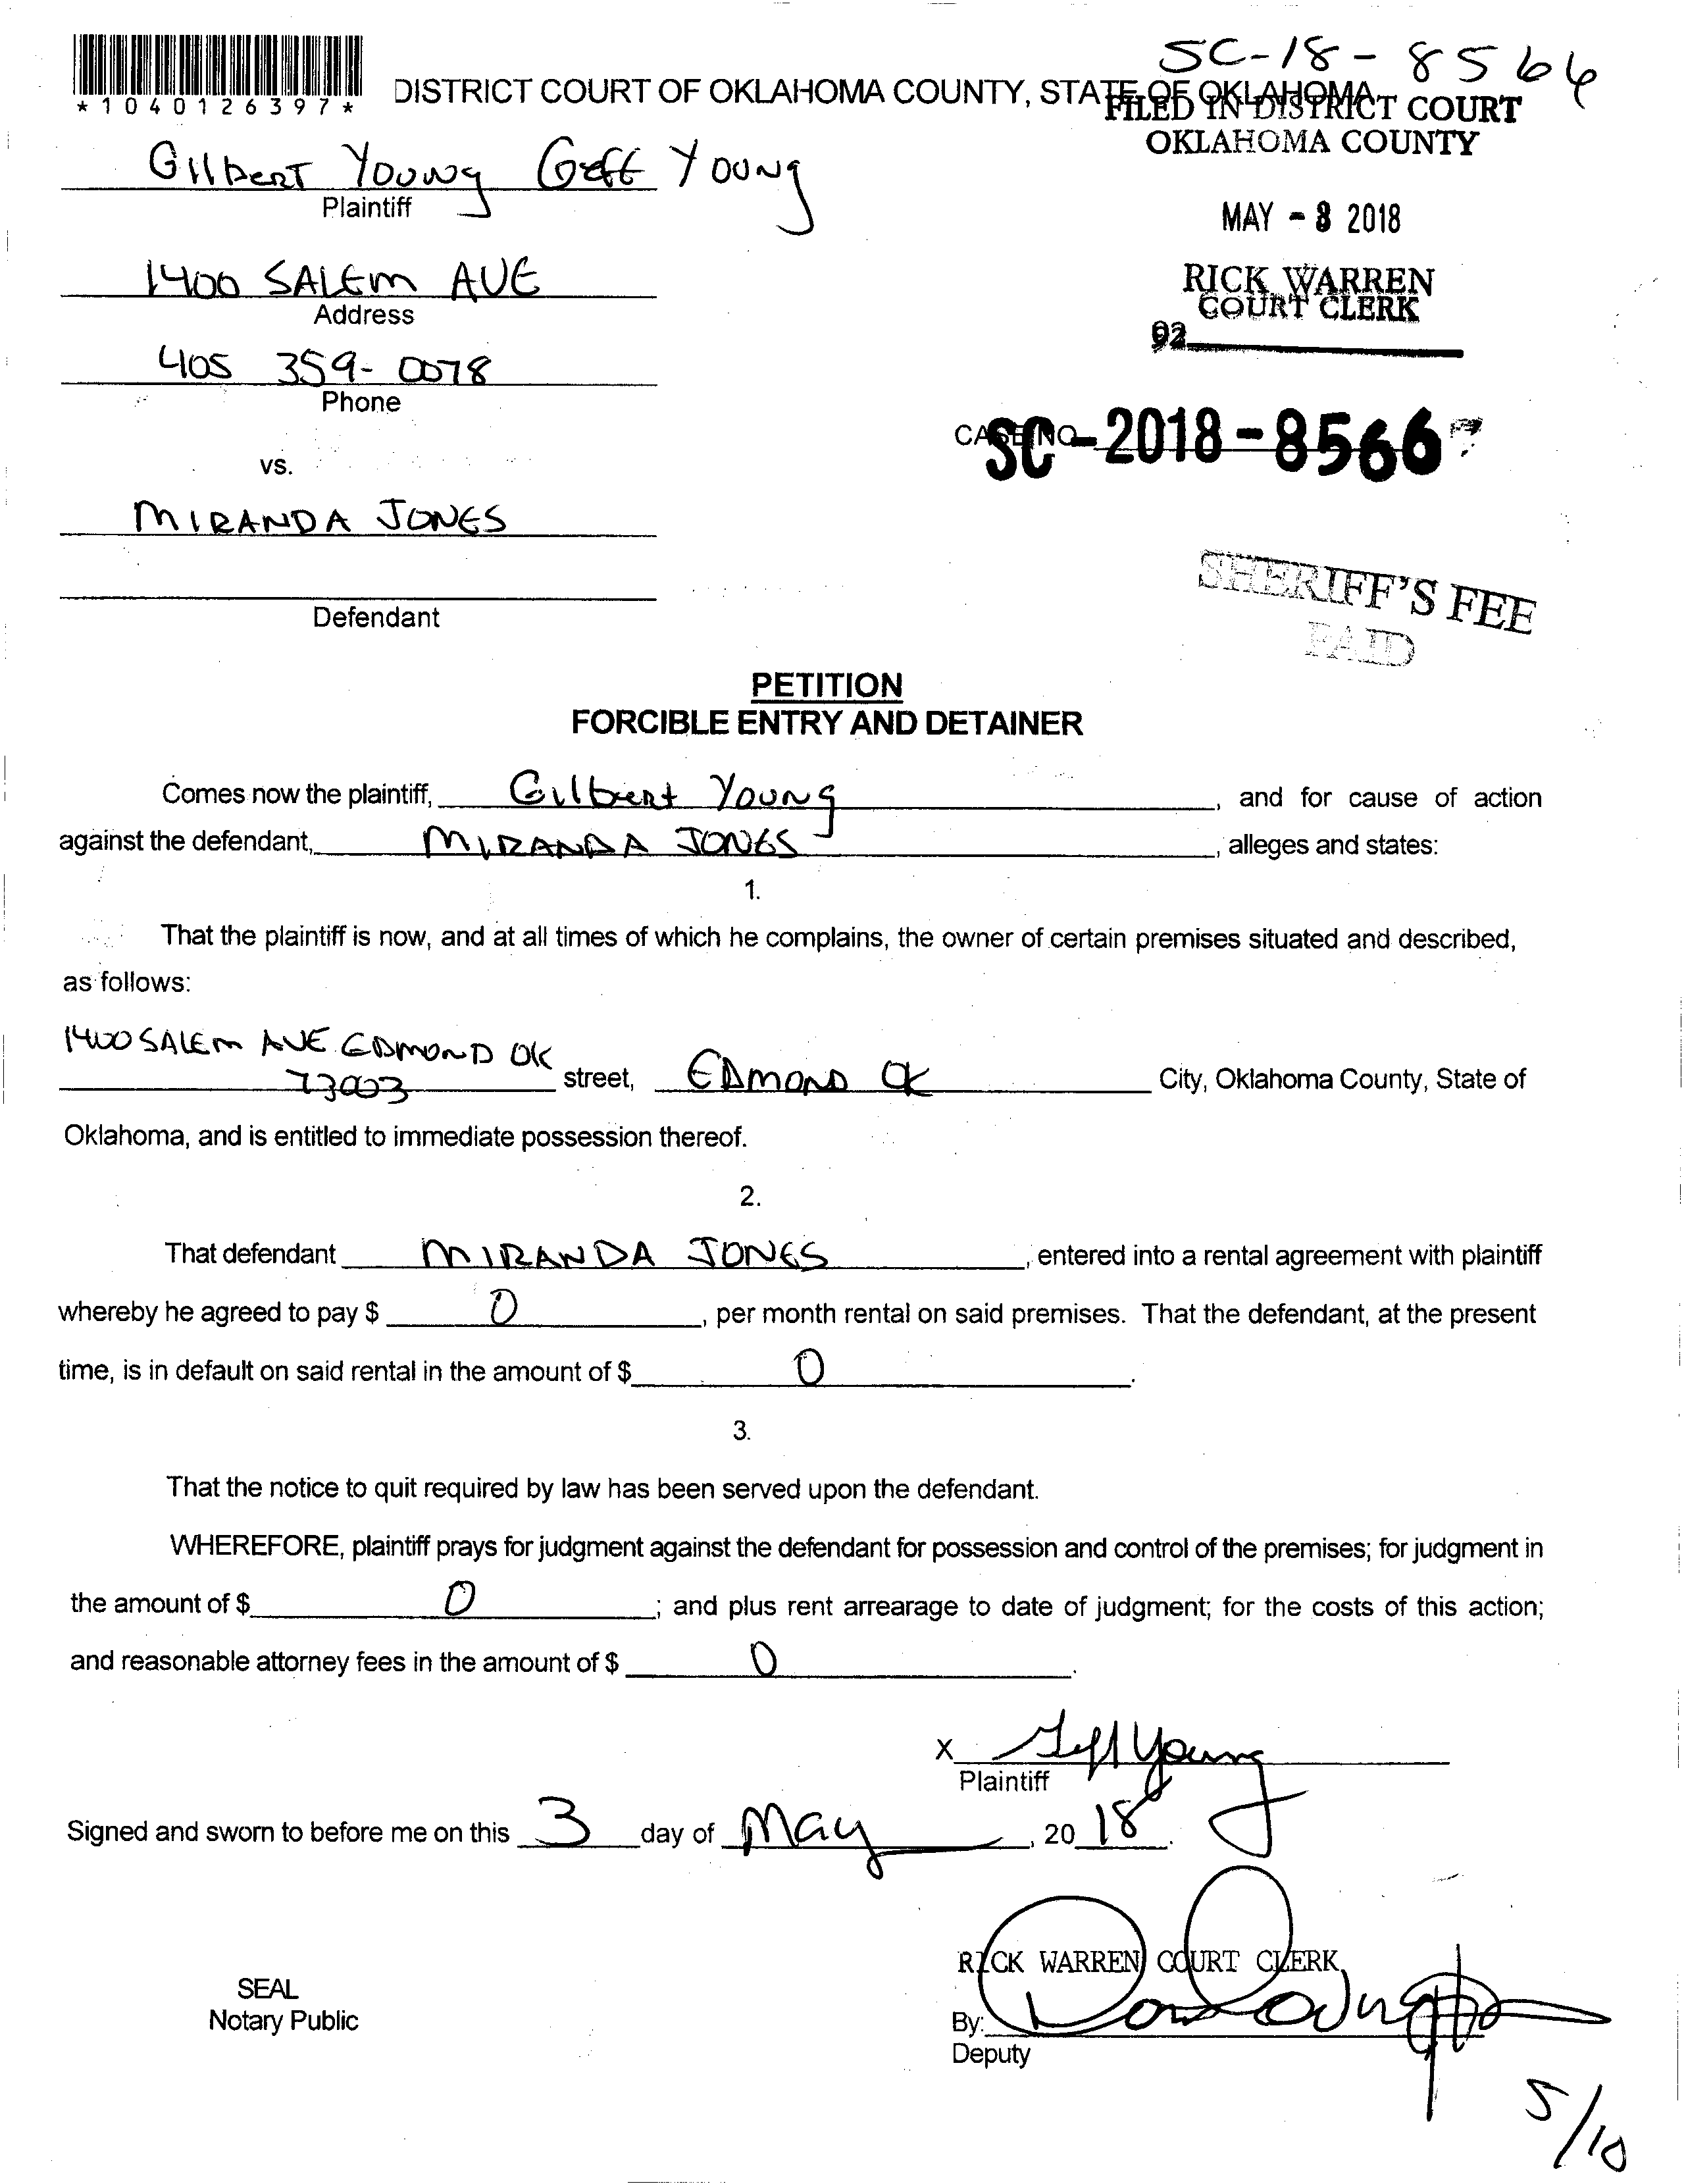 SC-18-8566
*1040126397*
DISTRICT COURT OF OKLAHOMA COUNTY, STATE OF OKLAHOMA
FILED IN DISTRICT COURT
OKLAHOMA COUNTY
Gilbert Young Geff Young
Plaintiff
MAY - 3 2018
1400 SALEM AVE
Address
RICK WARREN
COURT CLERK
92
405 359-0078
Phone
CASE NO.
SC-2018-8566
vs.
MIRANDA JONES
Defendant
SHERIFF'S FEE
PAID
PETITION
FORCIBLE ENTRY AND DETAINER
Comes now the plaintiff, Gilbert Young, and for cause of action
against the defendant, MIRANDA JONES, alleges and states:
1.
That the plaintiff is now, and at all times of which he complains, the owner of certain premises situated and described,
as follows:
1400 SALEM AVE EDMOND OK
73003 street, EDMOND OK City, Oklahoma County, State of
Oklahoma, and is entitled to immediate possession thereof.
2.
That defendant MIRANDA JONES, entered into a rental agreement with plaintiff
whereby he agreed to pay $ 0, per month rental on said premises. That the defendant, at the present
time, is in default on said rental in the amount of $ 0.
3.
That the notice to quit required by law has been served upon the defendant.
WHEREFORE, plaintiff prays for judgment against the defendant for possession and control of the premises; for judgment in
the amount of $ 0; and plus rent arrearage to date of judgment; for the costs of this action;
and reasonable attorney fees in the amount of $ 0.
X Geff Young
Plaintiff
Signed and sworn to before me on this 3 day of May, 20 18.
RICK WARREN COURT CLERK
SEAL
Notary Public
By:
Deputy
5/10